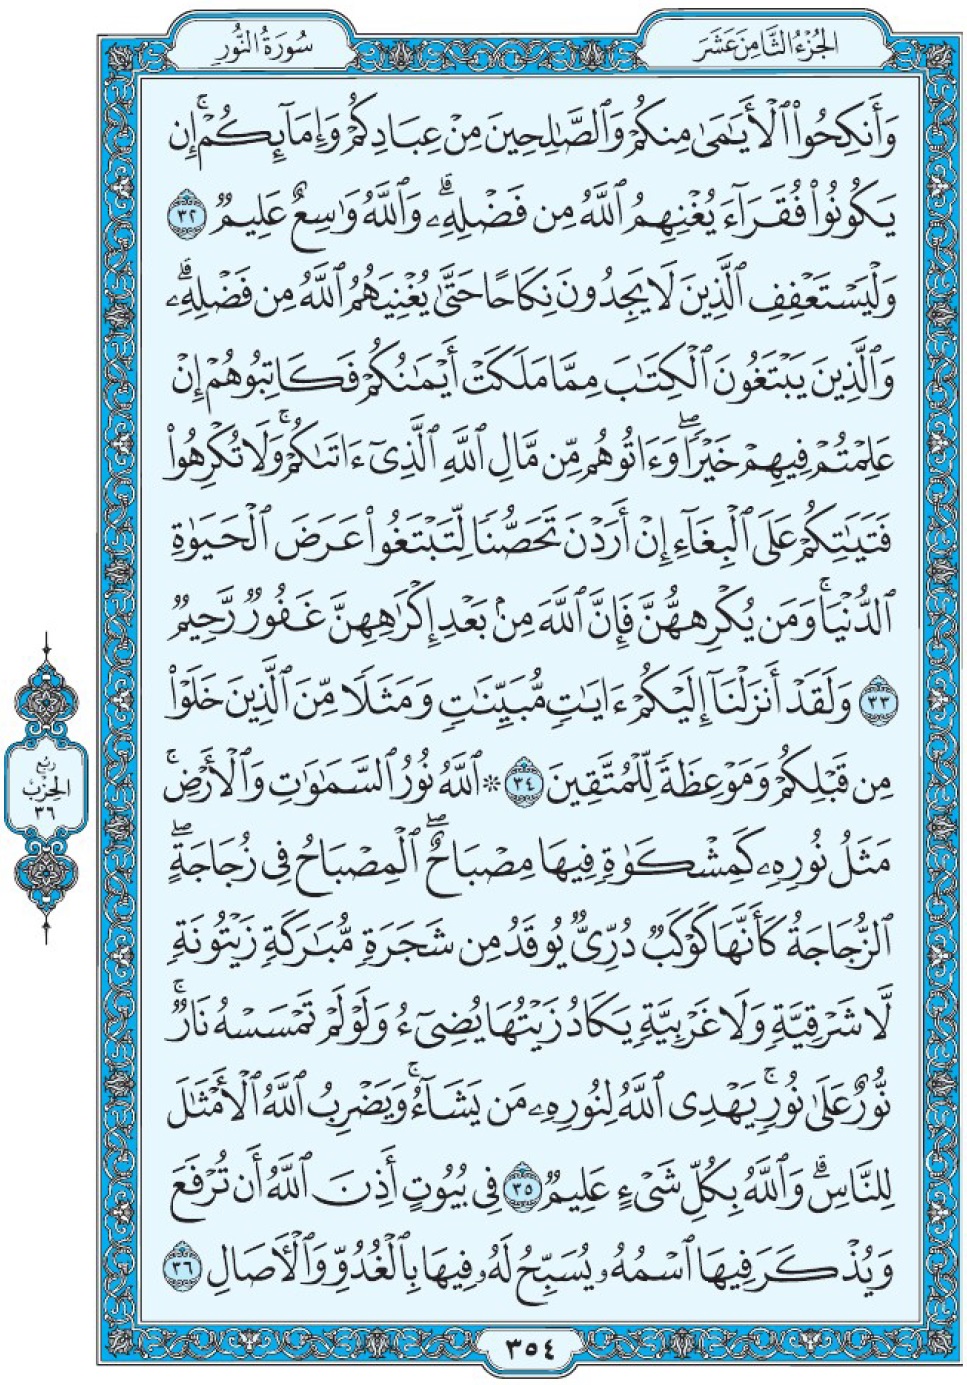 الجُزْءُ الثَّامِنَ عَشَرَ
سُورَةُ النُّورِ
وَأَنكِحُوا۟ ٱلْأَيَـٰمَىٰ مِنكُمْ وَٱلصَّـٰلِحِينَ مِنْ عِبَادِكُمْ وَإِمَآئِكُمْ ۚ إِن
يَكُونُوا۟ فُقَرَآءَ يُغْنِهِمُ ٱللَّهُ مِن فَضْلِهِۦ ۗ وَٱللَّهُ وَٰسِعٌ عَلِيمٌ ٣٢
وَلْيَسْتَعْفِفِ ٱلَّذِينَ لَا يَجِدُونَ نِكَاحًا حَتَّىٰ يُغْنِيَهُمُ ٱللَّهُ مِن فَضْلِهِۦ ۗ
وَٱلَّذِينَ يَبْتَغُونَ ٱلْكِتَـٰبَ مِمَّا مَلَكَتْ أَيْمَـٰنُكُمْ فَكَاتِبُوهُمْ إِنْ
عَلِمْتُمْ فِيهِمْ خَيْرًا ۖ وَءَاتُوهُم مِّن مَّالِ ٱللَّهِ ٱلَّذِىٓ ءَاتَىٰكُمْ ۚ وَلَا تُكْرِهُوا۟
فَتَيَـٰتِكُمْ عَلَى ٱلْبِغَآءِ إِنْ أَرَدْنَ تَحَصُّنًا لِّتَبْتَغُوا۟ عَرَضَ ٱلْحَيَوٰةِ
ٱلدُّنْيَا ۚ وَمَن يُكْرِههُّنَّ فَإِنَّ ٱللَّهَ مِنۢ بَعْدِ إِكْرَٰهِهِنَّ غَفُورٌ رَّحِيمٌ
٣٣ وَلَقَدْ أَنزَلْنَآ إِلَيْكُمْ ءَايَـٰتٍ مُّبَيِّنَـٰتٍ وَمَثَلًا مِّنَ ٱلَّذِينَ خَلَوْا۟
مِن قَبْلِكُمْ وَمَوْعِظَةً لِّلْمُتَّقِينَ ٣٤ * ٱللَّهُ نُورُ ٱلسَّمَـٰوَٰتِ وَٱلْأَرْضِ ۚ
مَثَلُ نُورِهِۦ كَمِشْكَوٰةٍ فِيهَا مِصْبَاحٌ ۖ ٱلْمِصْبَاحُ فِى زُجَاجَةٍ ۖ
ٱلزُّجَاجَةُ كَأَنَّهَا كَوْكَبٌ دُرِّىٌّ يُوقَدُ مِن شَجَرَةٍ مُّبَـٰرَكَةٍ زَيْتُونَةٍ
لَّا شَرْقِيَّةٍ وَلَا غَرْبِيَّةٍ يَكَادُ زَيْتُهَا يُضِىٓءُ وَلَوْ لَمْ تَمْسَسْهُ نَارٌ ۚ
نُّورٌ عَلَىٰ نُورٍ ۗ يَهْدِى ٱللَّهُ لِنُورِهِۦ مَن يَشَآءُ ۚ وَيَضْرِبُ ٱللَّهُ ٱلْأَمْثَـٰلَ
لِلنَّاسِ ۗ وَٱللَّهُ بِكُلِّ شَىْءٍ عَلِيمٌ ٣٥ فِى بُيُوتٍ أَذِنَ ٱللَّهُ أَن تُرْفَعَ
وَيُذْكَرَ فِيهَا ٱسْمُهُۥ يُسَبِّحُ لَهُۥ فِيهَا بِٱلْغُدُوِّ وَٱلْـَٔاصَالِ ٣٦
رُبْعُ
الحِزْبِ
٣٦
٣٥٤